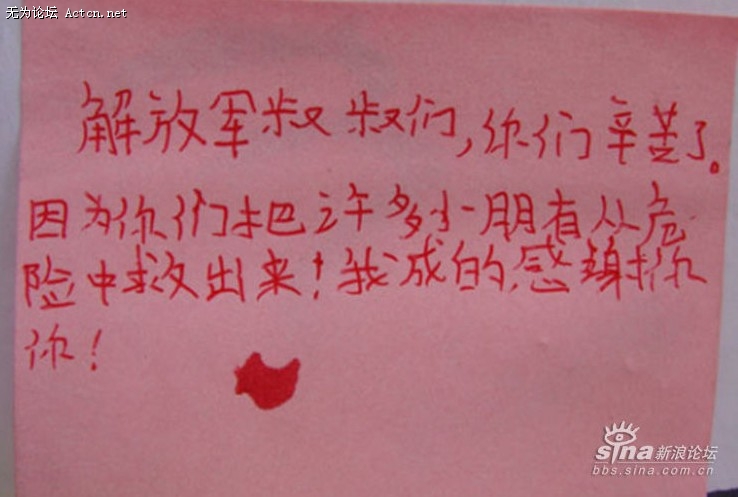 无为论坛 Actcn.net
解放军叔叔们,你们辛苦了。
因为你们把许多小朋有从危
险中救出来!我成的感谢你
你!
sina新浪论坛
bbs.sina.com.cn